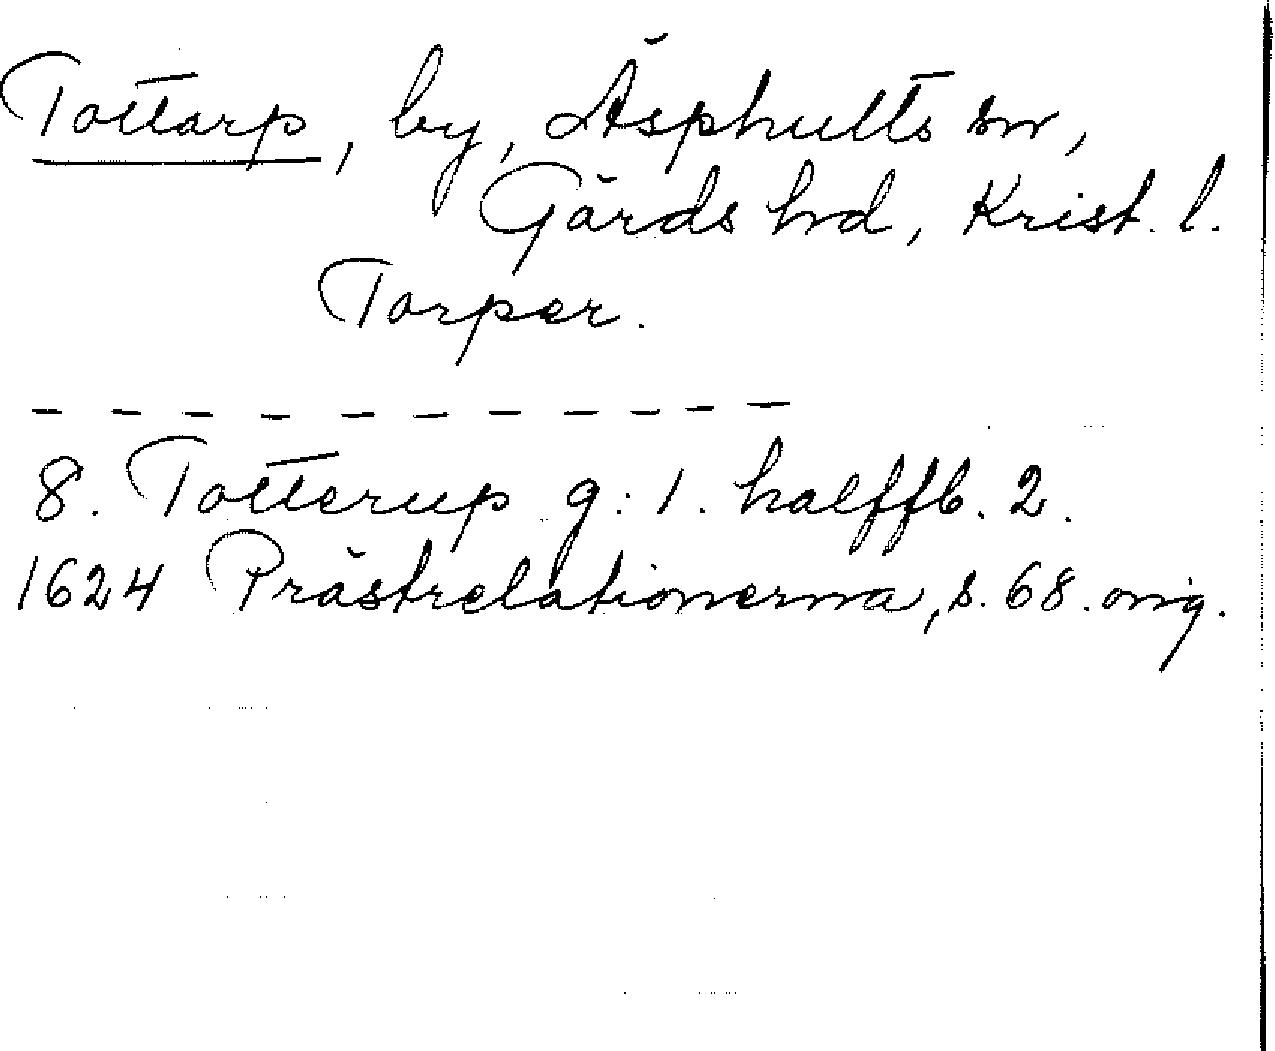 Tottarp, by, Äsphults sn,
Gärds hd, Krist. l.
Torper.
- - - - - - - - - - -
8. Totterup g: 1. halffb. 2.
1624 Prästrelationerna, s. 68. orig.